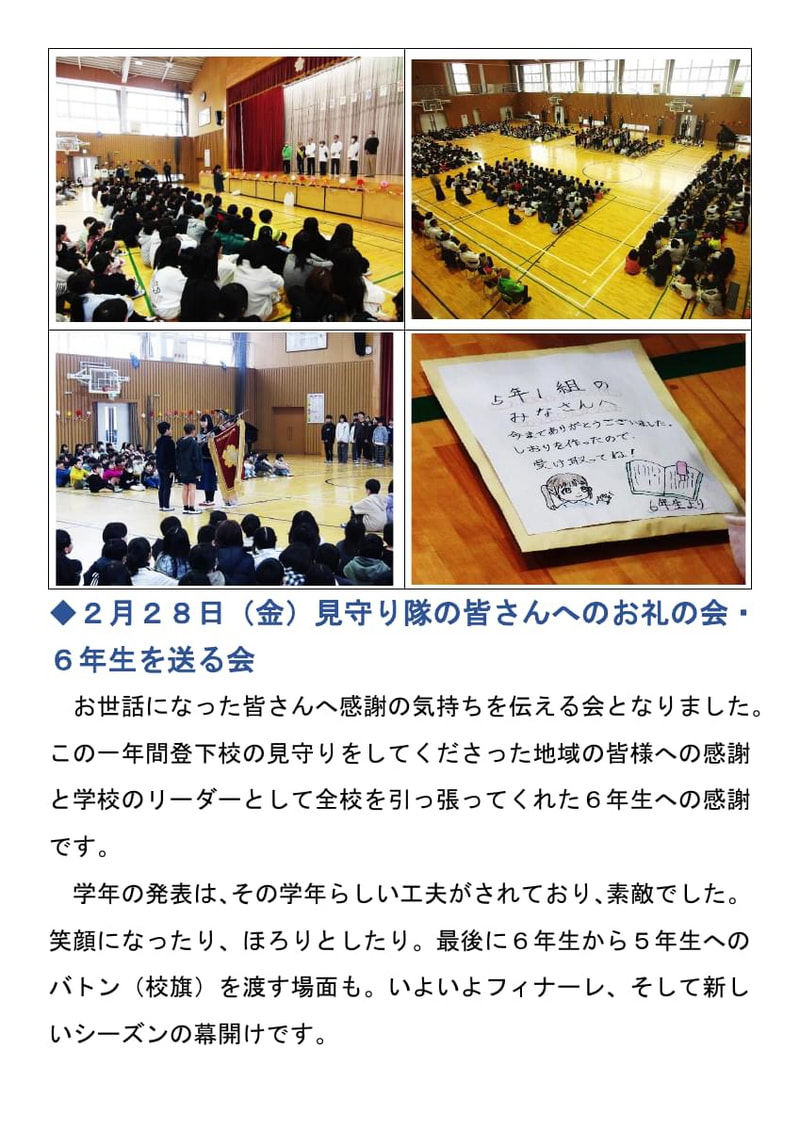 5年1組の
みなさんへ
今までありがとうございました。
しおりを作ったので、
受け取ってね!
6年生より
◆2月28日（金）見守り隊の皆さんへのお礼の会・
６年生を送る会
　お世話になった皆さんへ感謝の気持ちを伝える会となりました。
この一年間登下校の見守りをしてくださった地域の皆様への感謝
と学校のリーダーとして全校を引っ張ってくれた６年生への感謝
です。
　学年の発表は、その学年らしい工夫がされており、素敵でした。
笑顔になったり、ほろりとしたり。最後に６年生から５年生への
バトン（校旗）を渡す場面も。いよいよフィナーレ、そして新し
いシーズンの幕開けです。